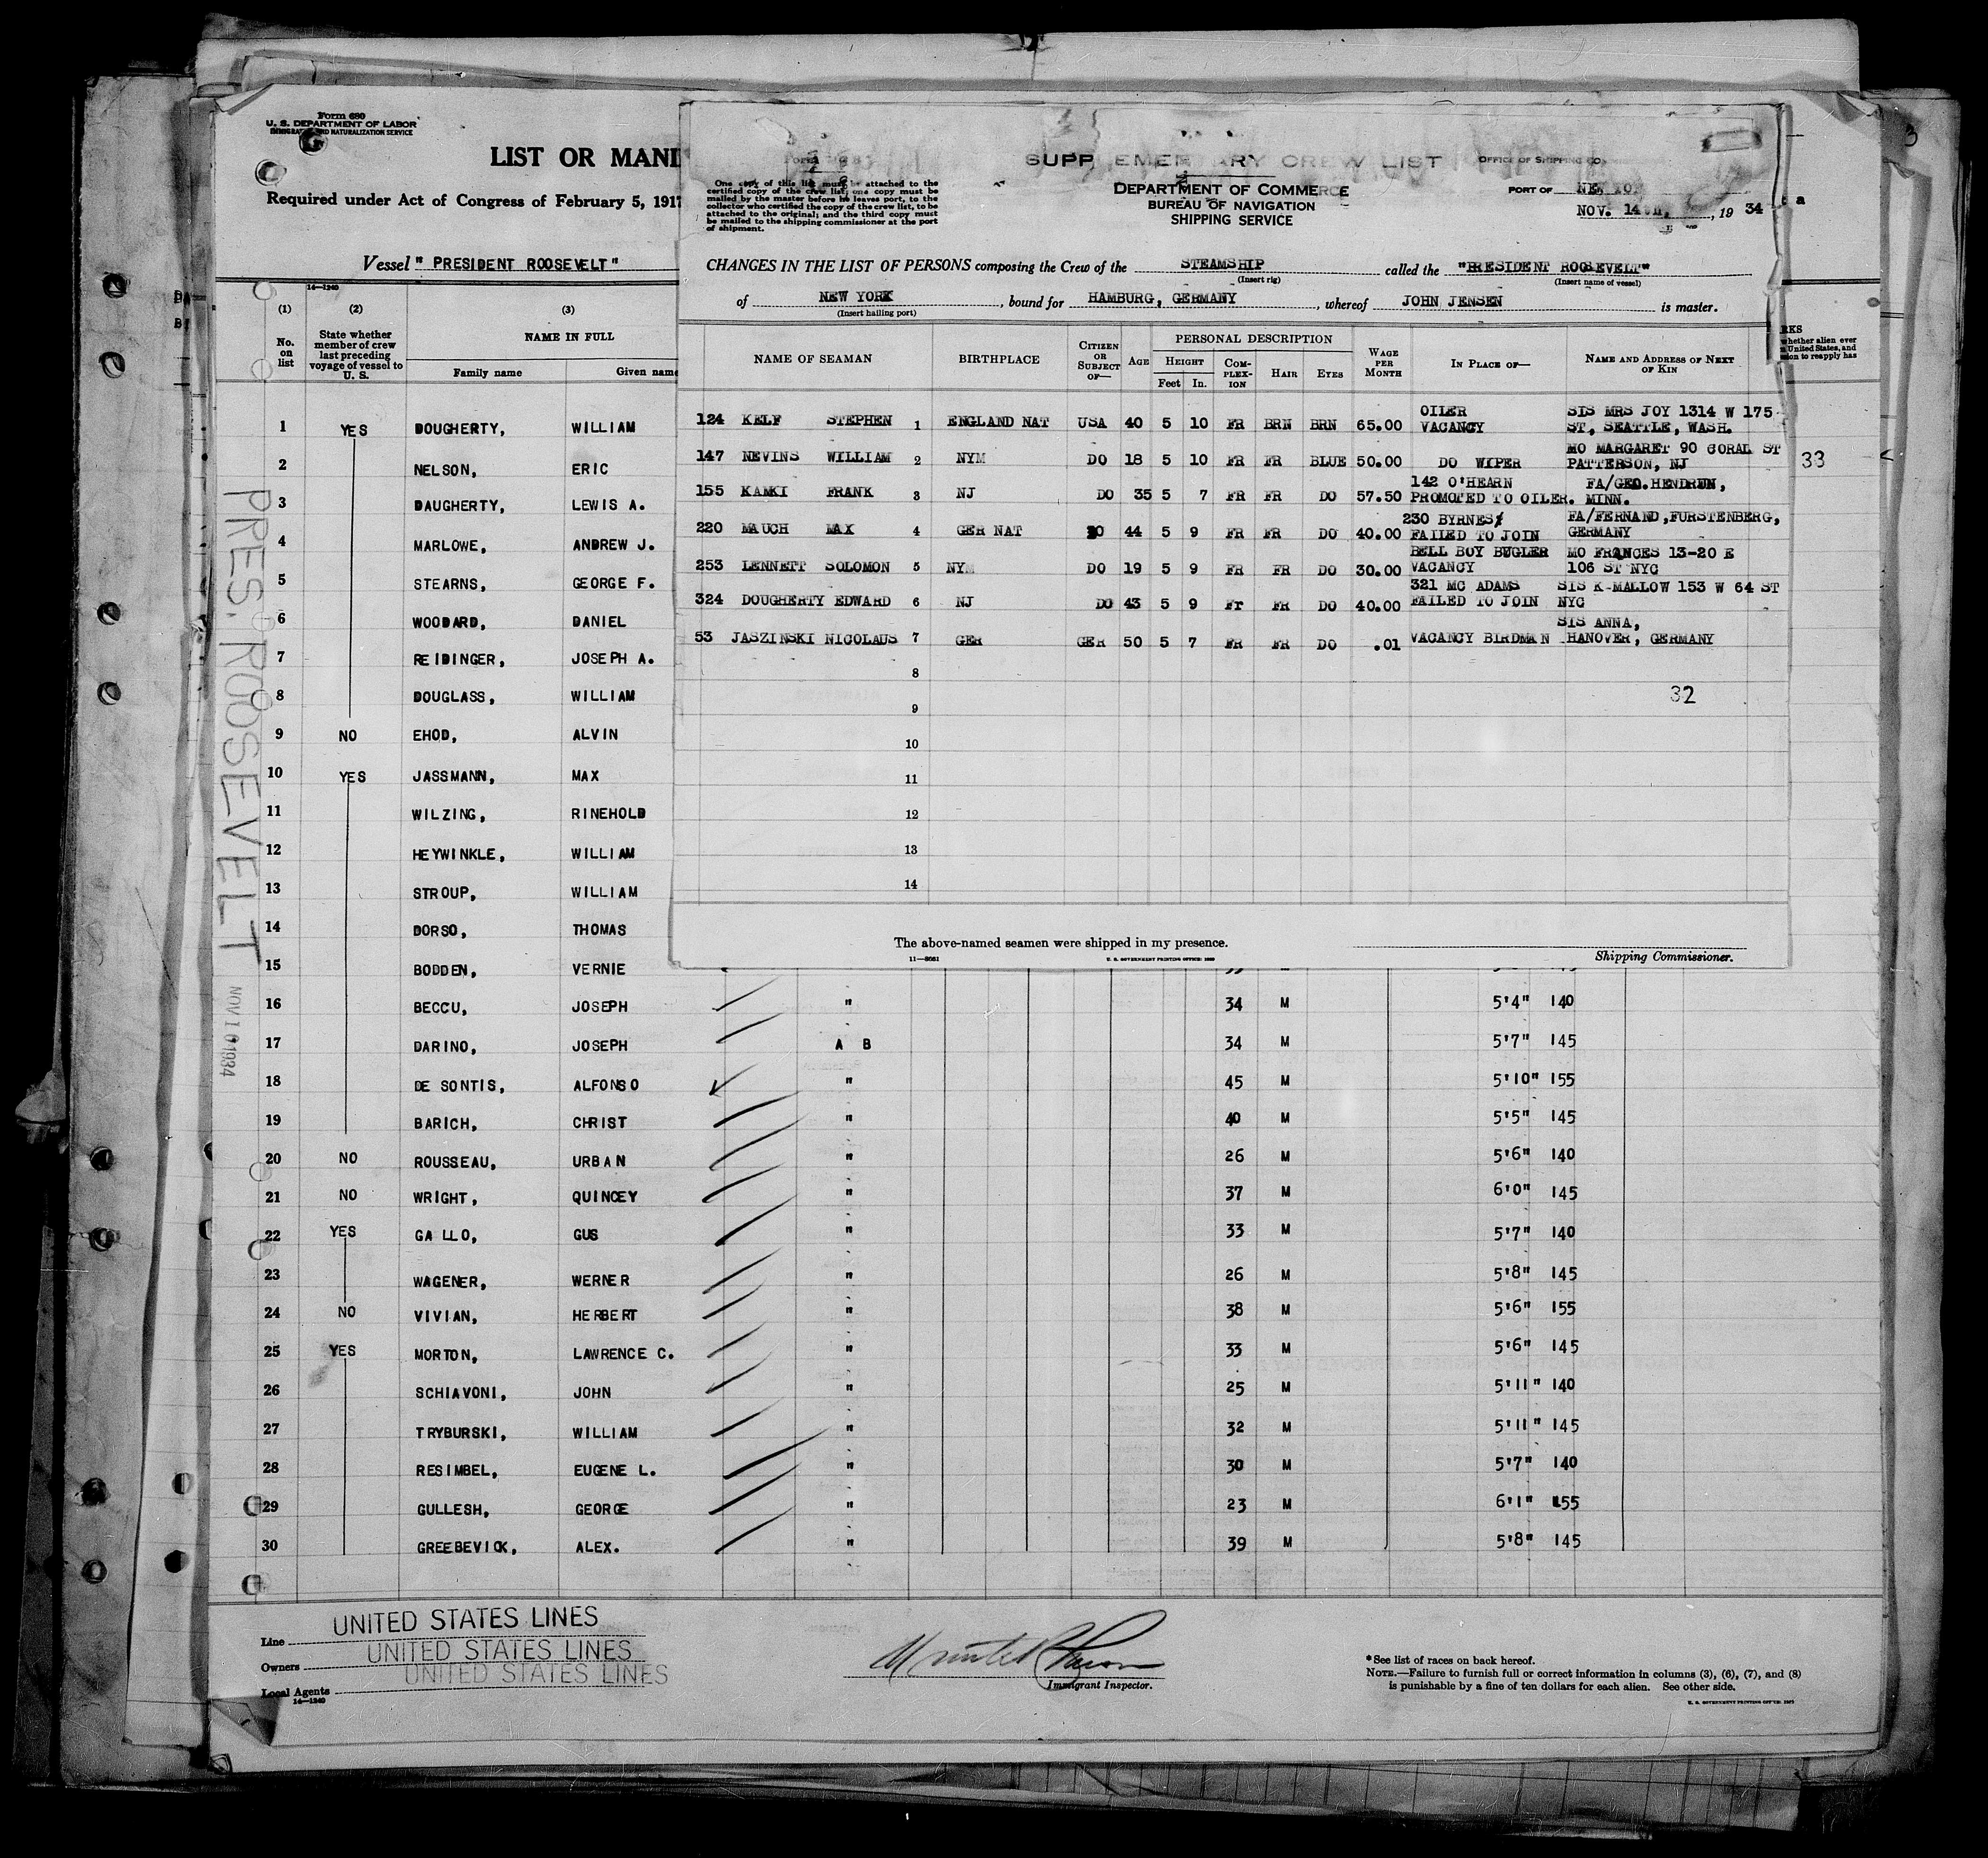 Form 680
U. S. DEPARTMENT OF LABOR
IMMIGRATION AND NATURALIZATION SERVICE
LIST OR MANI
Required under Act of Congress of February 5, 1917
Vessel " PRESIDENT ROOSEVELT"
14—1240
(1) (2) (3)
No. on list
State whether member of crew last preceding voyage of vessel to U. S.
NAME IN FULL
Family name Given name
1 YES DOUGHERTY, WILLIAM
2 NELSON, ERIC
3 DAUGHERTY, LEWIS A.
4 MARLOWE, ANDREW J.
5 STEARNS, GEORGE F.
6 WOODARD, DANIEL
7 REIDINGER, JOSEPH A.
8 DOUGLASS, WILLIAM
9 NO EHOD, ALVIN
10 YES JASSMANN, MAX
11 WILZING, RINEHOLD
12 HEYWINKLE, WILLIAM
13 STROUP, WILLIAM
14 DORSO, THOMAS
15 BODDEN, VERNIE
16 BECCU, JOSEPH " 34 M 5'4" 140
17 DARINO, JOSEPH A B 34 M 5'7" 145
18 DE SONTIS, ALFONSO " 45 M 5'10" 155
19 BARICH, CHRIST " 40 M 5'5" 145
20 NO ROUSSEAU, URBAN " 26 M 5'6" 140
21 NO WRIGHT, QUINCEY " 37 M 6'0" 145
22 YES GALLO, GUS " 33 M 5'7" 140
23 WAGENER, WERNER " 26 M 5'8" 145
24 NO VIVIAN, HERBERT " 38 M 5'6" 155
25 YES MORTON, LAWRENCE C. " 33 M 5'6" 145
26 SCHIAVONI, JOHN " 25 M 5'11" 140
27 TRYBURSKI, WILLIAM " 32 M 5'11" 145
28 RESIMBEL, EUGENE L. " 30 M 5'7" 140
29 GULLESH, GEORGE " 23 M 6'1" 155
30 GREEBEVICK, ALEX. " 39 M 5'8" 145
PRES. ROOSEVELT
NOV 1 1934
Line UNITED STATES LINES
Owners UNITED STATES LINES
Local Agents UNITED STATES LINES
14—1240
Immigrant Inspector.
*See list of races on back hereof.
NOTE.—Failure to furnish full or correct information in columns (3), (6), (7), and (8)
is punishable by a fine of ten dollars for each alien. See other side.
One copy of this list must be attached to the
certified copy of the crew list; one copy must be
mailed by the master before he leaves port, to the
collector who certified the copy of the crew list, to be
attached to the original; and the third copy must
be mailed to the shipping commissioner at the port
of shipment.
SUPPLEMENTARY CREW LIST
DEPARTMENT OF COMMERCE
BUREAU OF NAVIGATION
SHIPPING SERVICE
OFFICE OF SHIPPING CO
PORT OF NEW YOR
NOV. 14TH, , 19 34
CHANGES IN THE LIST OF PERSONS composing the Crew of the STEAMSHIP called the "PRESIDENT ROOSEVELT"
(Insert rig) (Insert name of vessel)
of NEW YORK , bound for HAMBURG, GERMANY , whereof JOHN JENSEN is master.
(Insert hailing port)
NAME OF SEAMAN BIRTHPLACE CITIZEN OR SUBJECT OF— AGE PERSONAL DESCRIPTION HEIGHT Feet In. COMPLEXION HAIR EYES WAGE PER MONTH IN PLACE OF— NAME AND ADDRESS OF NEXT OF KIN
124 KELF STEPHEN 1 ENGLAND NAT USA 40 5 10 FR BRN BRN 65.00 OILER VACANCY SIS MRS JOY 1314 W 175 ST, SEATTLE, WASH.
147 NEVINS WILLIAM 2 NYM DO 18 5 10 FR FR BLUE 50.00 DO WIPER MO MARGARET 90 CORAL ST PATTERSON, NJ
155 KAMKI FRANK 3 NJ DO 35 5 7 FR FR DO 57.50 142 O'HEARN PROMOTED TO OILER. FA/GEO.HENDRUM, MINN.
220 MAUCH MAX 4 GER NAT DO 44 5 9 FR FR DO 40.00 230 BYRNES FAILED TO JOIN FA/FERNAND,FURSTENBERG, GERMANY
253 LENNETT SOLOMON 5 NYM DO 19 5 9 FR FR DO 30.00 BELL BOY BUGLER VACANCY MO FRANCES 13-20 E 106 ST NYC
324 DOUGHERTY EDWARD 6 NJ DO 43 5 9 Fr FR DO 40.00 321 MC ADAMS FAILED TO JOIN SIS K MALLOW 153 W 64 ST NYC
53 JASZINSKI NICOLAUS 7 GER GER 50 5 7 FR FR DO .01 VACANCY BIRDMAN SIS ANNA, HANOVER, GERMANY
8
32
9
10
11
12
13
14
The above-named seamen were shipped in my presence.
Shipping Commissioner.
11—8081
U. S. GOVERNMENT PRINTING OFFICE
33
RKS
whether alien ever
United States, and
ion to reapply has
3